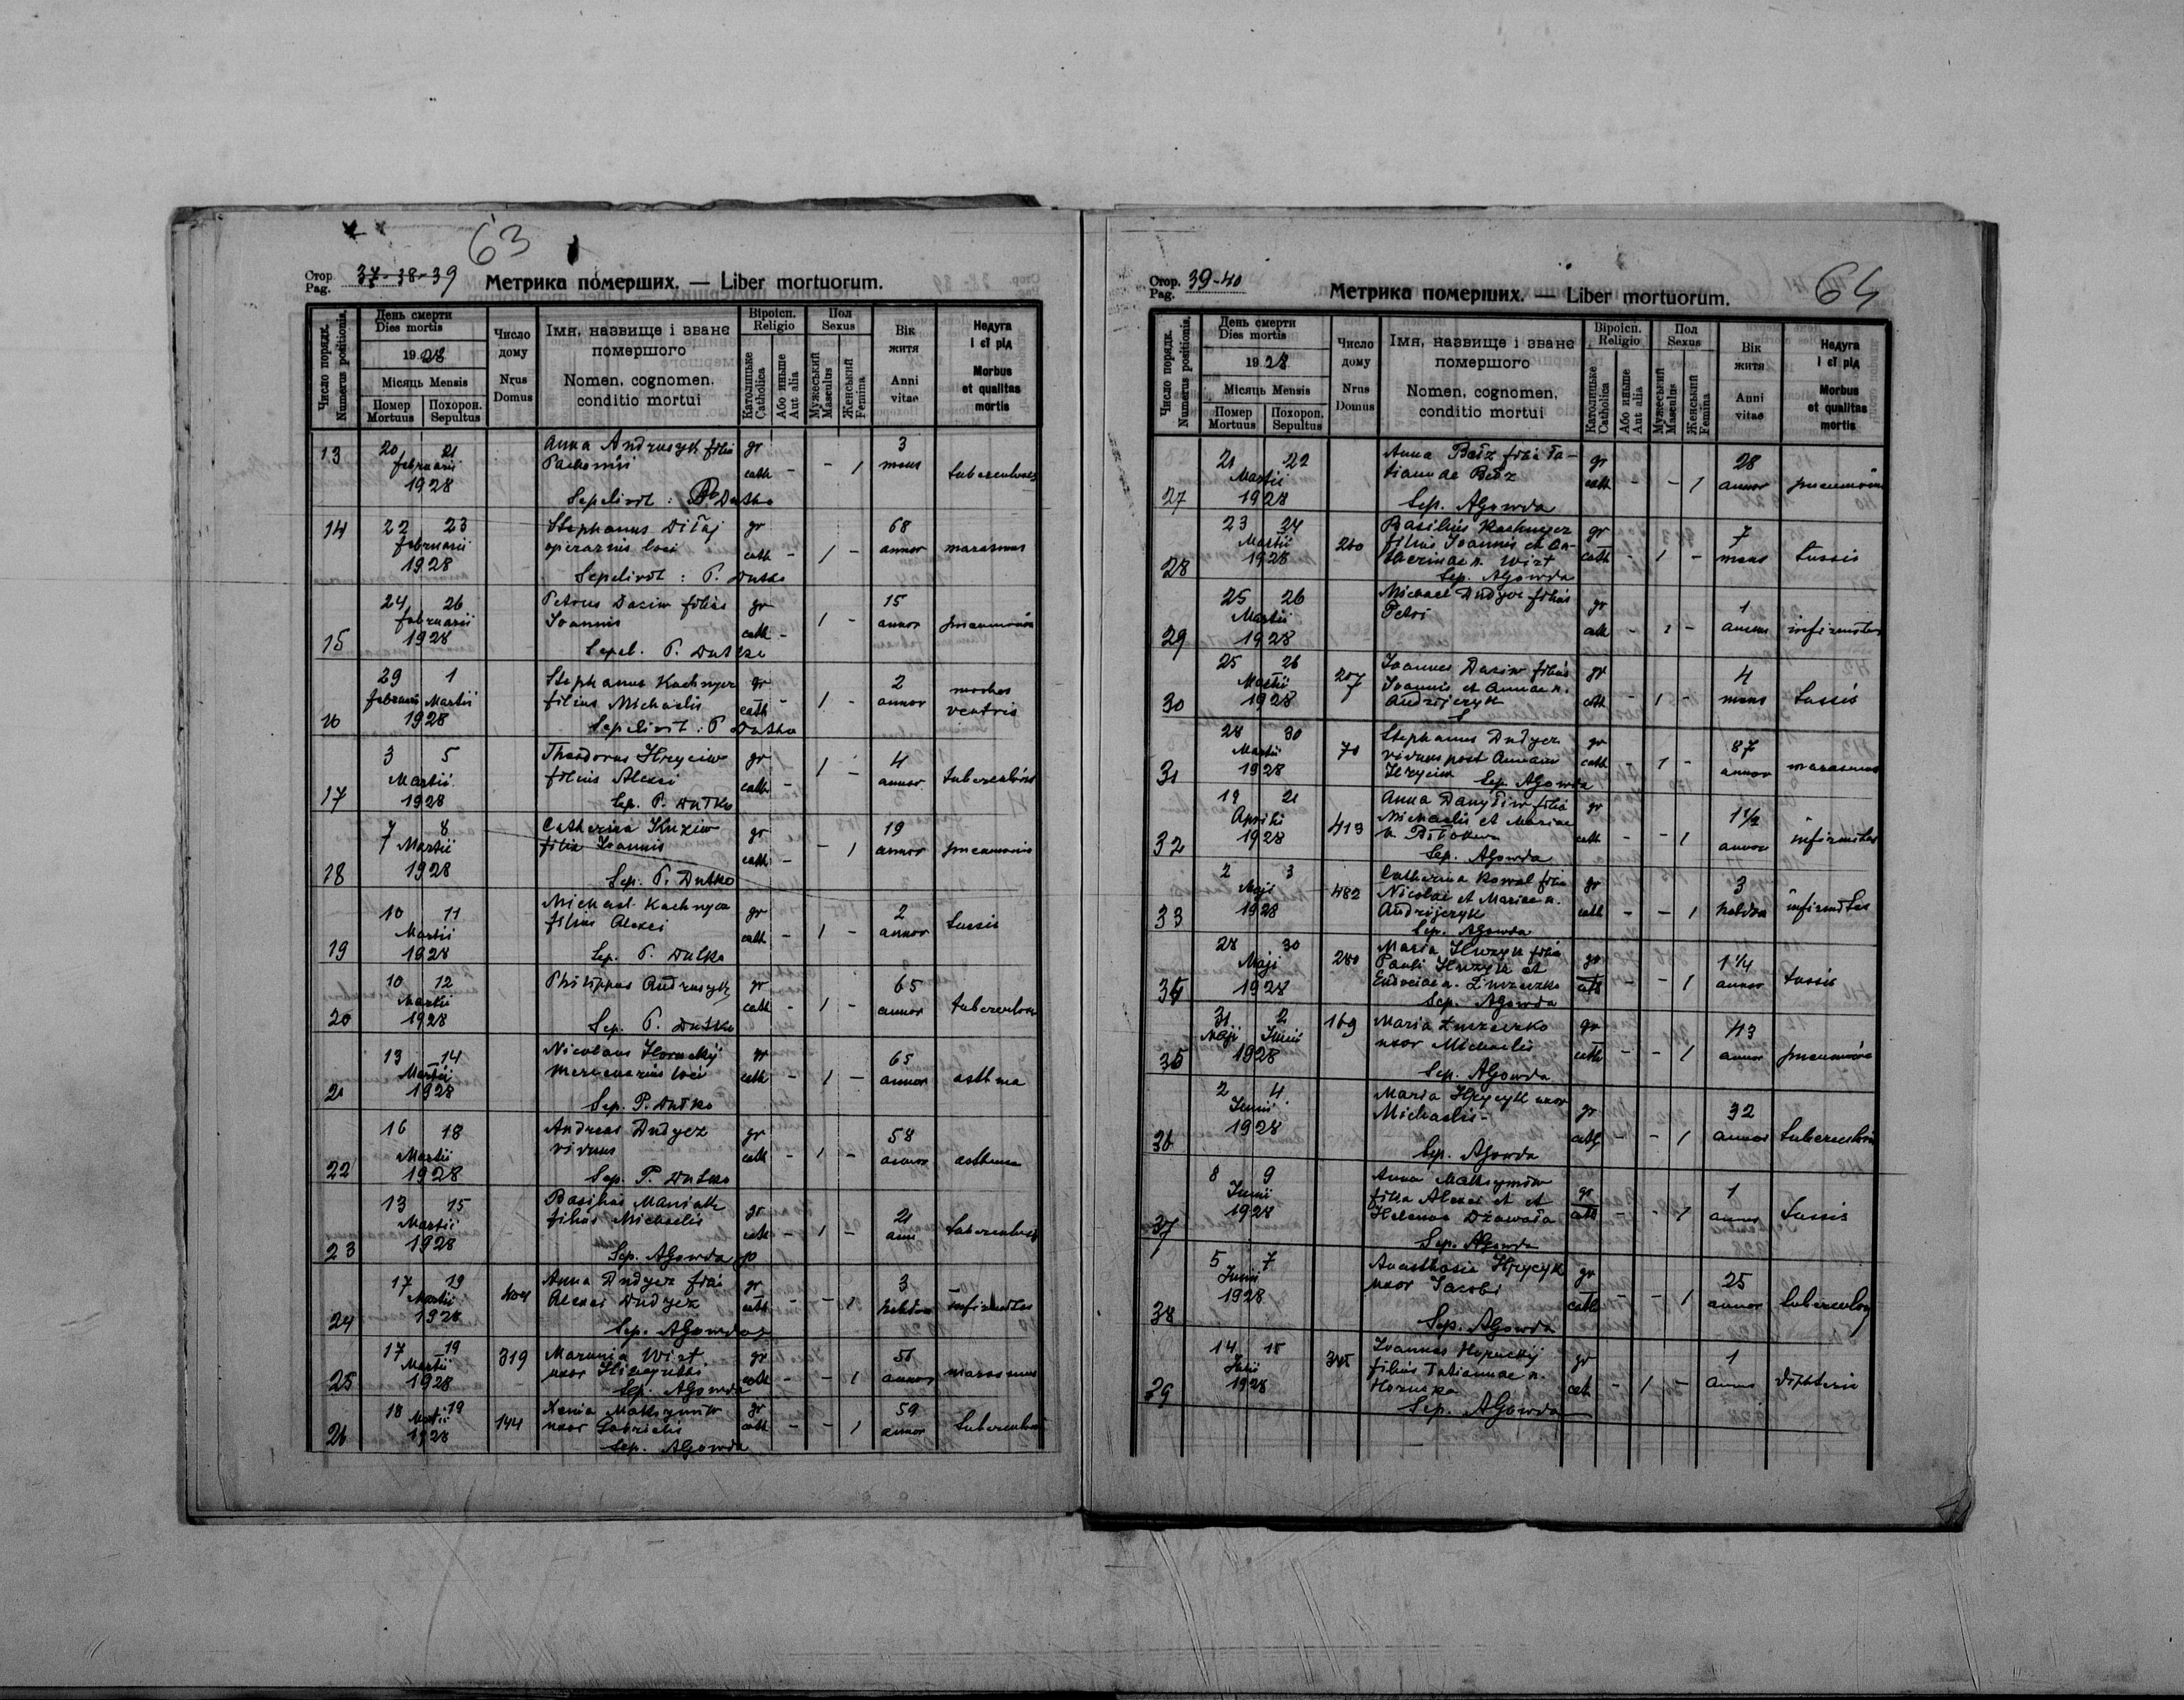 63
Стор.
Pag. 37-38-39 Метрика померших. — Liber mortuorum.
Число порядк.
Numerus positionis.
День смерти
Dies mortis
1928
Місяць Mensis
Помер
Mortuus
Похорон.
Sepultus
Число
дому
Nrus
Domus
Імя, назвище і званє
помершого
Nomen, cognomen,
conditio mortui
Віроісп.
Religio
Католицьке
Catholica
Або иньше
Aut alia
Пол
Sexus
Мужеський
Masculus
Женський
Femina
Вік
житя
Anni
vitae
Недуга
і єї рід
Morbus
et qualitas
mortis
13 20 21 Anna Andrusyk filia gr 3
februarii Pachomii cath - - 1 mens tuberculosis
1928
Sepelivit : P. Dutko
14 22 23 Stephanus Diłaj gr 68
februarii operarius loci cath - 1 - annor marasmus
1928
Sepelivit : P. Dutko
24 26 Petrus Daciw filius gr 15
februarii Ioannis cath - 1 - annor pneumonia
15 1928
Sepel. P. Dutko
29 1 Stephanus Kachnycz gr 2 morbus
februarii Martii filius Michaelis cath - 1 - annor ventris
16 1928 Sepelivit : P. Dutko
3 5 Theodorus Hryciw gr 4
Martii filius Alexii cath - 1 - annor tuberculosis
17 1928 Sep. P. Dutko
7 8 Catherina Kuziw gr 19
Martii filia Ioannis cath - - 1 annor pneumonia
18 1928 Sep. P. Dutko
10 11 Michael Kachnycz gr 2
Martii filius Alexii cath - 1 - annor tussis
19 1928 Sep. P. Dutko
10 12 Philippus Andrusyk gr 65
Martii cath - 1 - annor tuberculosis
20 1928 Sep. P. Dutko
13 14 Nicolaus Hornckyj gr 65
Martii mercenarius loci cath - 1 - annor asthma
21 1928 Sep. P. Dutko
16 18 Andreas Dudycz gr 58
Martii viduus cath - 1 - annor asthma
22 1928 Sep. P. Dutko
13 15 Basilius Maniak gr 21
Martii filius Michaelis cath - 1 - anni tuberculosis
23 1928 Sep. AGowda
17 19 404 Anna Dudycz filia gr 3
Martii Alexii Dudycz cath - - 1 hebdom infirmitas
24 1928 Sep. AGowda
17 19 319 Marunia Wirt gr
Martii uxor cath - - 1 annor marasmus
25 1928 Sep. AGowda
18 19 144 Xenia Maksymiw gr 59
Martii uxor Gabrielis cath - - 1 annor tuberculosis
26 1928 Sep. AGowda
64
Стор.
Pag. 39-40 Метрика померших. — Liber mortuorum.
Число порядк.
Numerus positionis.
День смерти
Dies mortis
1928
Місяць Mensis
Помер
Mortuus
Похорон.
Sepultus
Число
дому
Nrus
Domus
Імя, назвище і званє
помершого
Nomen, cognomen,
conditio mortui
Віроісп.
Religio
Католицьке
Catholica
Або иньше
Aut alia
Пол
Sexus
Мужеський
Masculus
Женський
Femina
Вік
житя
Anni
vitae
Недуга
і єї рід
Morbus
et qualitas
mortis
21 22 Anna Bełz filia Ta- gr 28
Martii tiannae Bełz cath - - 1 annor pneumonia
27 1928 Sep. AGowda
23 24 Basilius Kachnycz gr 7
Martii 260 filius Ioannis et Ca- cath - 1 - mens tussis
28 1928 therinae n. Wirt
Sep. AGowda
25 26 Michael Dudycz filius gr 1
Martii Petri cath - 1 - annus infirmitas
29 1928
25 26 207 Ioannes Daciw filius gr 4
Martii Ioannis et Annae n. cath - 1 - mens tussis
30 1928 Andrijczyk
28 30 70 Stephanus Dudycz gr 87
Martii viduus post Annam cath - 1 - annor marasmus
31 1928 Hryciw Sep. AGowda
19 21 Anna Danyliw filia gr 1 1/2
Aprilis 413 Michaelis et Mariae cath - - 1 annor infirmitas
32 1928 n.
Sep. AGowda
2 3 Catherina Kowal filia gr 3
Maji 482 Nicolai et Mariae n. cath - - 1 hebdom infirmitas
33 1928 Andrijczyk
Sep. AGowda
28 30 280 Maria Hrycyk filia gr 1 1/4
Maji Pauli Hrycyk et cath - - 1 annor tussis
34 1928 Eudociae n.
Sep. AGowda
31 2 169 Maria gr 43
Maji Junii uxor Michaelis cath - - 1 annor pneumonia
35 1928 Sep. AGowda
2 4 Maria Hrycyk uxor gr 32
Junii Michaelis cath - - 1 annor tuberculosis
36 1928 Sep. AGowda
8 9 Anna Maksymiw gr 1
Junii filia Alexii et et cath - - 1 annus tussis
37 1928 Helenae Dżawała
Sep. AGowda
5 7 Anasthasia Hrycyk gr 25
Junii uxor Jacobi cath - - 1 annor tuberculosis
38 1928 Sep. AGowda
14 15 345 Ioannes Hornckyj gr 1
filius Tatiannae n. cath - 1 - annus diphteria
39 1928
Sep. AGowda